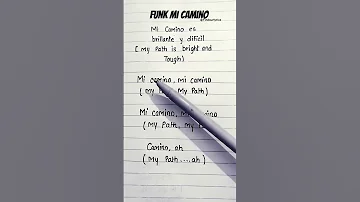 FUNK MI CAMINO
Mi Camino es
brillante y dificil
( my Path is bright and
Tough )
Mi camino, mi camino
( my My Path )
Mi camino, mi camino
( my Path, my
Camino, ah
( My Path .... ah )